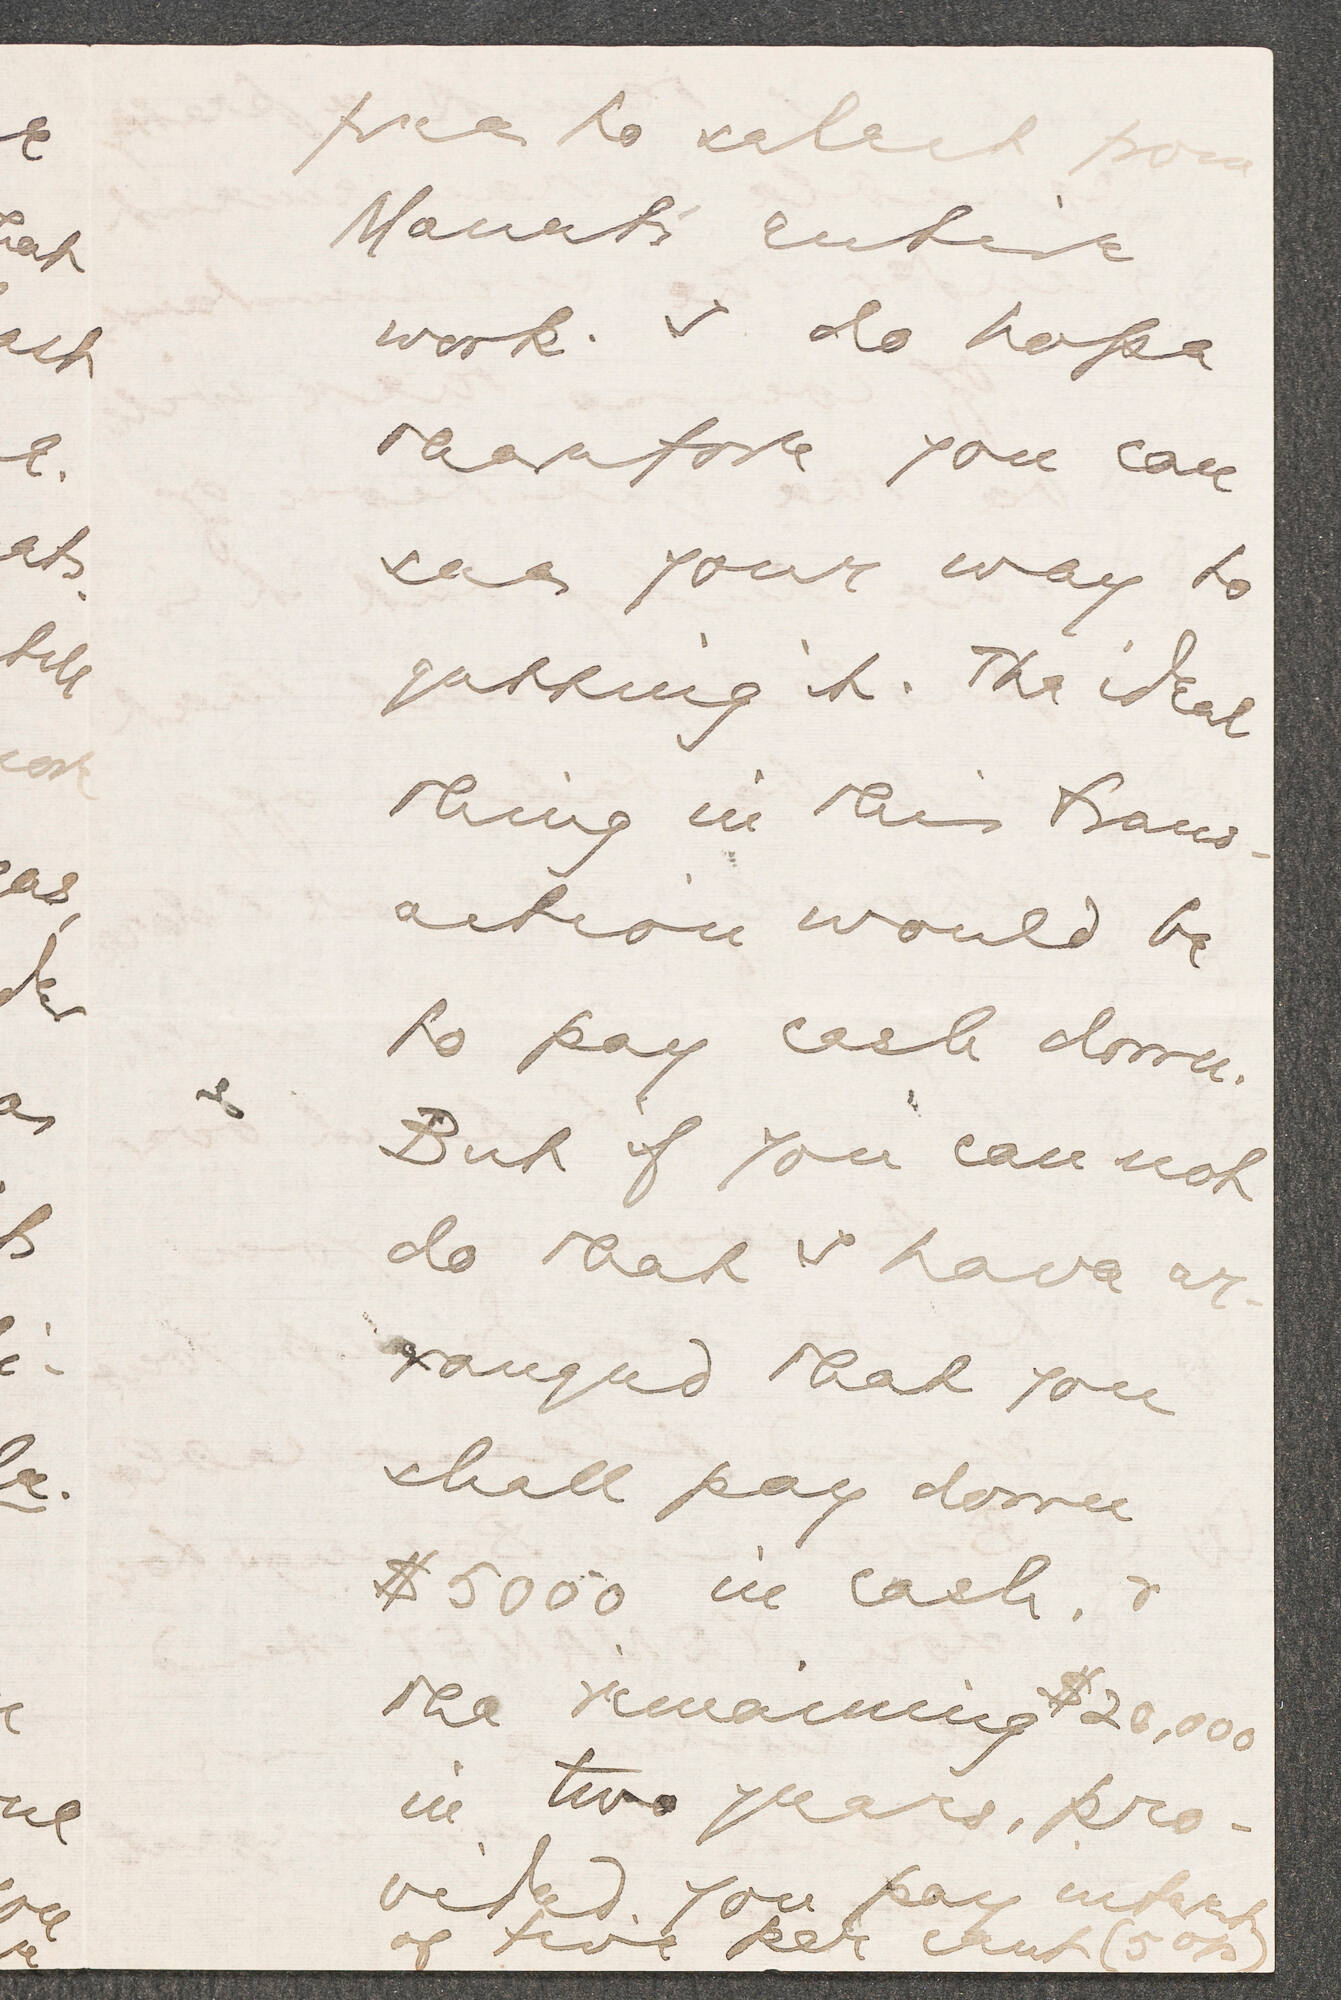 free to select from
Manet's entire
work. I do hope
therefore you can
see your way to
getting it. The ideal
thing in this trans-
action would be
to pay cash down.
But if you can not
do that I have ar-
ranged that you
shall pay down
$5000 in cash, &
the remaining $20,000
in two years, pro-
vided you pay interest
of five per cent (5 op)